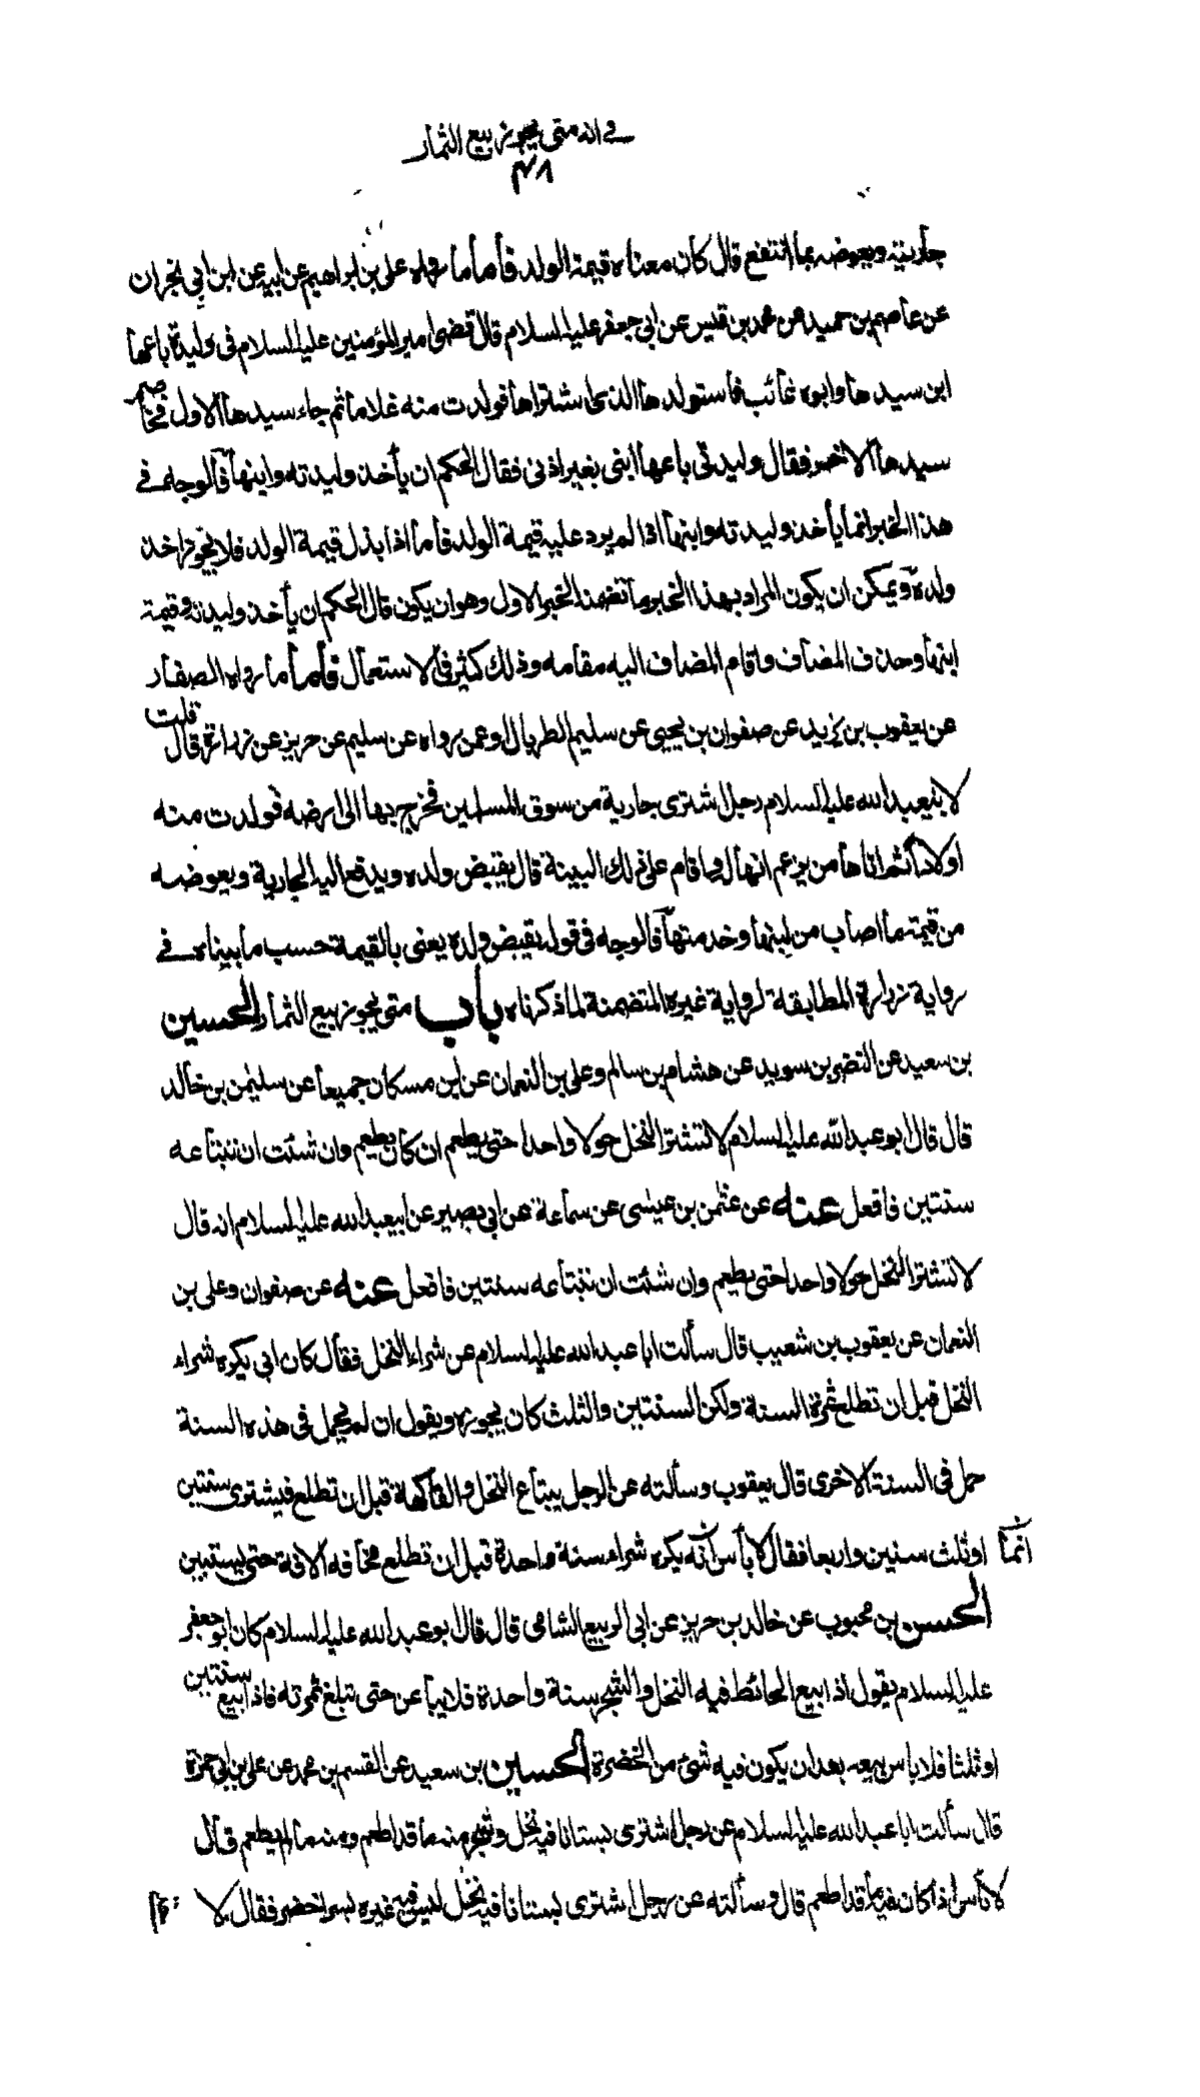 في انه متى يجوز بيع الثمار
٤٨
جاريته ويعوضه بما انتفع قال كان معناه قيمة الولد فأما ما رواه علي بن ابراهيم عن ابيه عن ابن ابي نجران
عن عاصم بن حميد عن محمد بن قيس عن ابي جعفر عليه السلام قال قضى امير المؤمنين عليه السلام في وليدة باعها
ابن سيدها وابوه غائب فاستولدها الذي اشتراها فولدت منه غلاما ثم جاء سيدها الاول فخاصم
سيدها الاخر فقال وليدتي باعها ابني بغير اذني فقال الحكم ان يأخذ وليدته وابنها فالوجه في
هذا الخبر انما يأخذ وليدته وابنها اذا لم يرد عليه قيمة الولد فأما اذا بذل قيمة الولد فلا يجوز اخذ
ولده ويمكن ان يكون المراد بهذا الخبر ما تضمنه الخبر الاول وهو ان يكون قال الحكم ان يأخذ وليدته وقيمة
ابنها وحذف المضاف واقام المضاف اليه مقامه وذلك كثير في الاستعمال فأما ما رواه الصفار
عن يعقوب بن يزيد عن صفوان بن يحيى عن سليم الطربال او عمن رواه عن سليم عن حريز عن زرارة قال قلت
لابيعبد الله عليه السلام رجل اشترى جارية من سوق المسلمين فخرج بها الى ارضه فولدت منه
اولادا ثم اتاها من يزعم انها له واقام على ذلك البينة قال يقبض ولده ويدفع اليه الجارية ويعوضه
من قيمة ما اصاب من لبنها وخدمتها فالوجه في قوله يقبض ولده يعني بالقيمة حسب ما بيناه في
رواية زرارة المطابقة لرواية غيره المتضمنة لما ذكرناه باب متى يجوز بيع الثمار الحسين
بن سعيد عن النضر بن سويد عن هشام بن سالم وعلي بن النعمان عن ابن مسكان جميعا عن سليمن بن خالد
قال قال ابو عبد الله عليه السلام لا تشتر النخل حولا واحدا حتى يطعم ان كان يطعم وان شئت ان تبتاعه
سنتين فافعل عنه عن عثمن بن عيسى عن سماعة عن ابي بصير عن ابيعبد الله عليه السلام انه قال
لا تشتر النخل حولا واحدا حتى يطعم وان شئت ان تبتاعه سنتين فافعل عنه عن صفوان وعلي بن
النعمان عن يعقوب بن شعيب قال سألت ابا عبد الله عليه السلام عن شراء النخل فقال كان ابي يكره شراء
النخل قبل ان تطلع ثمرة السنة ولكن السنتين والثلث كان يجوزه ويقول ان لم يحمل في هذه السنة
حمل في السنة الاخرى قال يعقوب وسألته عن الرجل يبتاع النخل والفاكهة قبل ان تطلع فيشتري سنتين
او ثلث سنين واربعا فقال لا بأس انه يكره شراء سنة واحدة قبل ان تطلع مخافة الافة حتى يستبين
انما
الحسن بن محبوب عن خالد بن جرير عن ابي الربيع الشامي قال قال ابو عبد الله عليه السلام كان ابو جعفر
عليه السلام يقول اذا بيع الحائط فيه النخل والشجر سنة واحدة فلا يباعن حتى تبلغ ثمرته فاذا بيع سنتين
او ثلثا فلا باس ببيعه بعد ان يكون فيه شئ من الخضرة الحسين بن سعيد عن القسم بن محمد عن علي بن ابي حمزة
قال سألت ابا عبد الله عليه السلام عن رجل اشترى بستانا فيه نخل وشجر منه ما قد اطعم ومنه ما لم يطعم قال
لا بأس اذا كان فيه ما قد اطعم قال وسألته عن رجل اشترى بستانا فيه نخل ليس فيه غيره بسر اخضر فقال لا